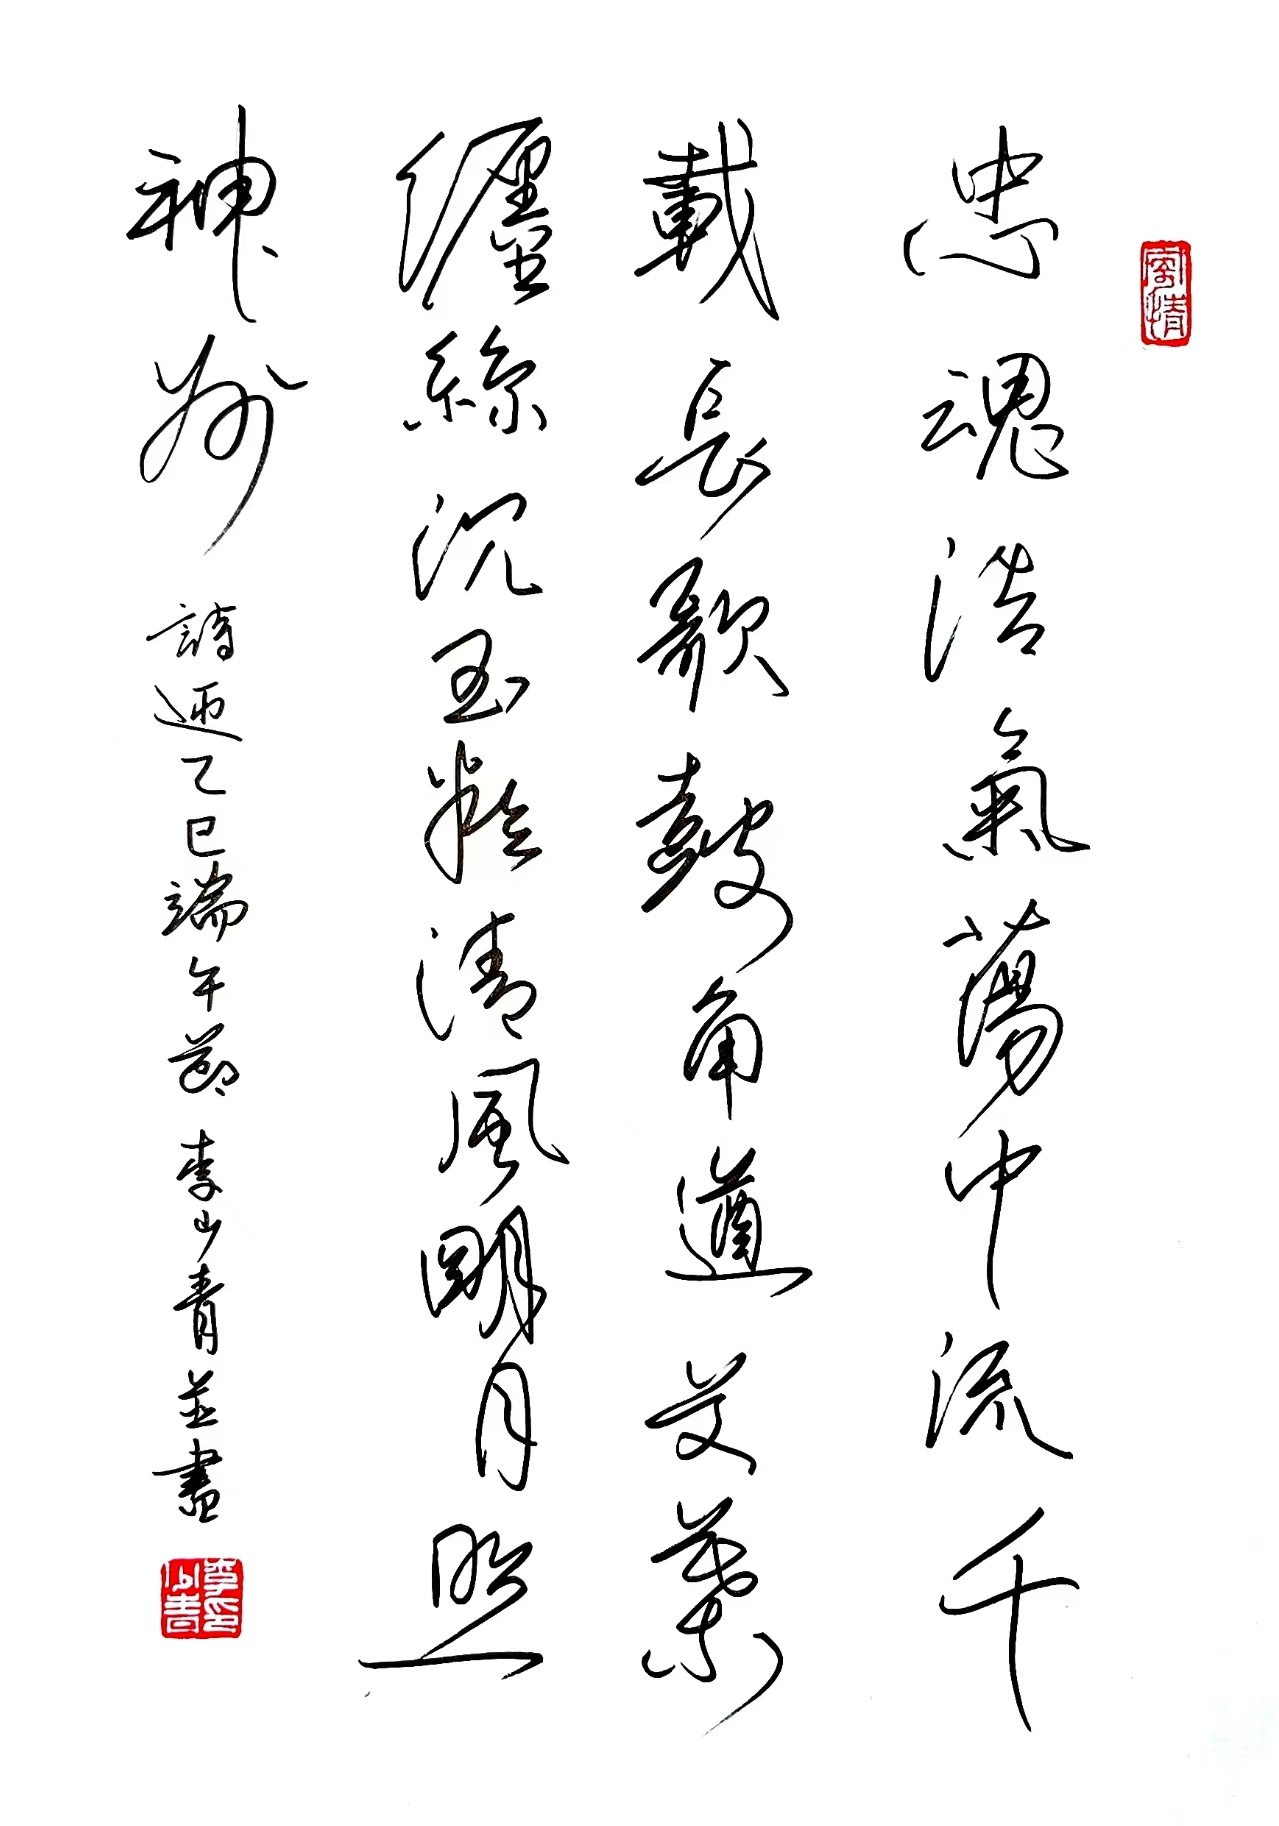 寄情
忠魂浩氣蕩中流千
載長歌鼓角遒艾葉
纏絲沉玉粽清風明月照
神州 詩乙巳端午節李山青並書
李山青印